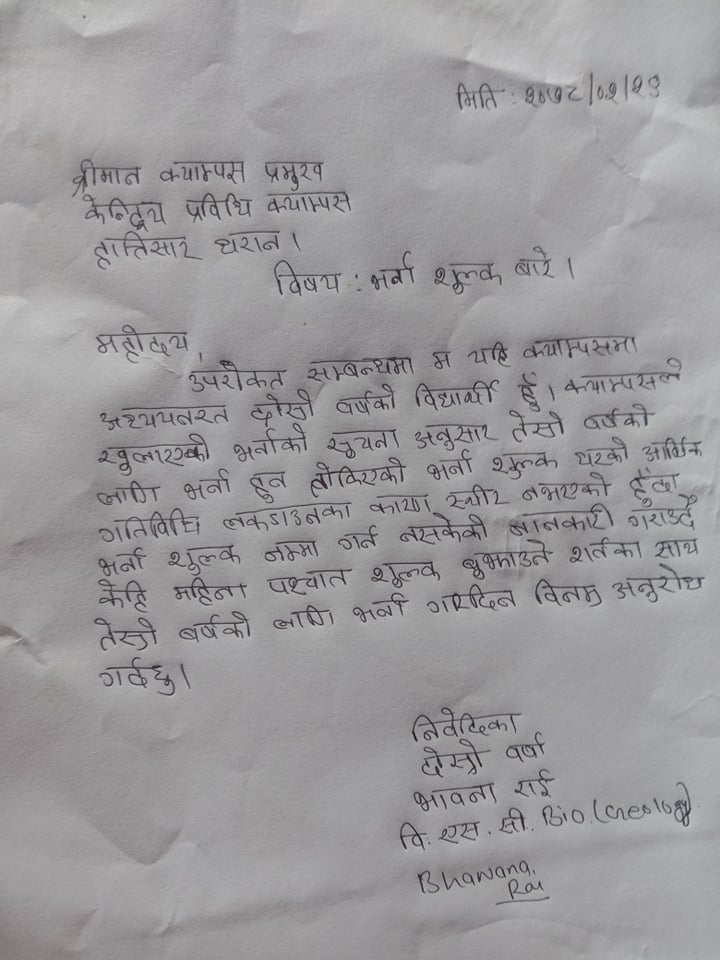 मिति : २०७८/०२/२९
श्रीमान क्याम्पस प्रमुख
केन्द्रिय प्रविधि क्याम्पस
हात्तिसार धरान ।
विषय : भर्ना शुल्क बारे ।
महोदय,
उपरोक्त सम्बन्धमा म यहि क्याम्पसमा
अध्ययनरत दोस्रो वर्षको विद्यार्थी हुँ । क्याम्पसले
खुलाएको भर्नाको सूचना अनुसार तेस्रो वर्षको
लागि भर्ना हुन तोकिएको भर्ना शुल्क घरको आर्थिक
गतिविधि लकडाउनका कारण स्थीर नभएको हुँदा
भर्ना शुल्क जम्मा गर्न नसकेको जानकारी गराउदै
केहि महिना पश्चात शुल्क बुझाउने शर्तका साथ
तेस्रो बर्षको लागि भर्ना गरिदिन विनम्र अनुरोध
गर्दछु ।
निवेदिका
दोस्रो वर्ष
भावना राई
वि. एस. सी. Bio. (Geology)
Bhawana
Rai